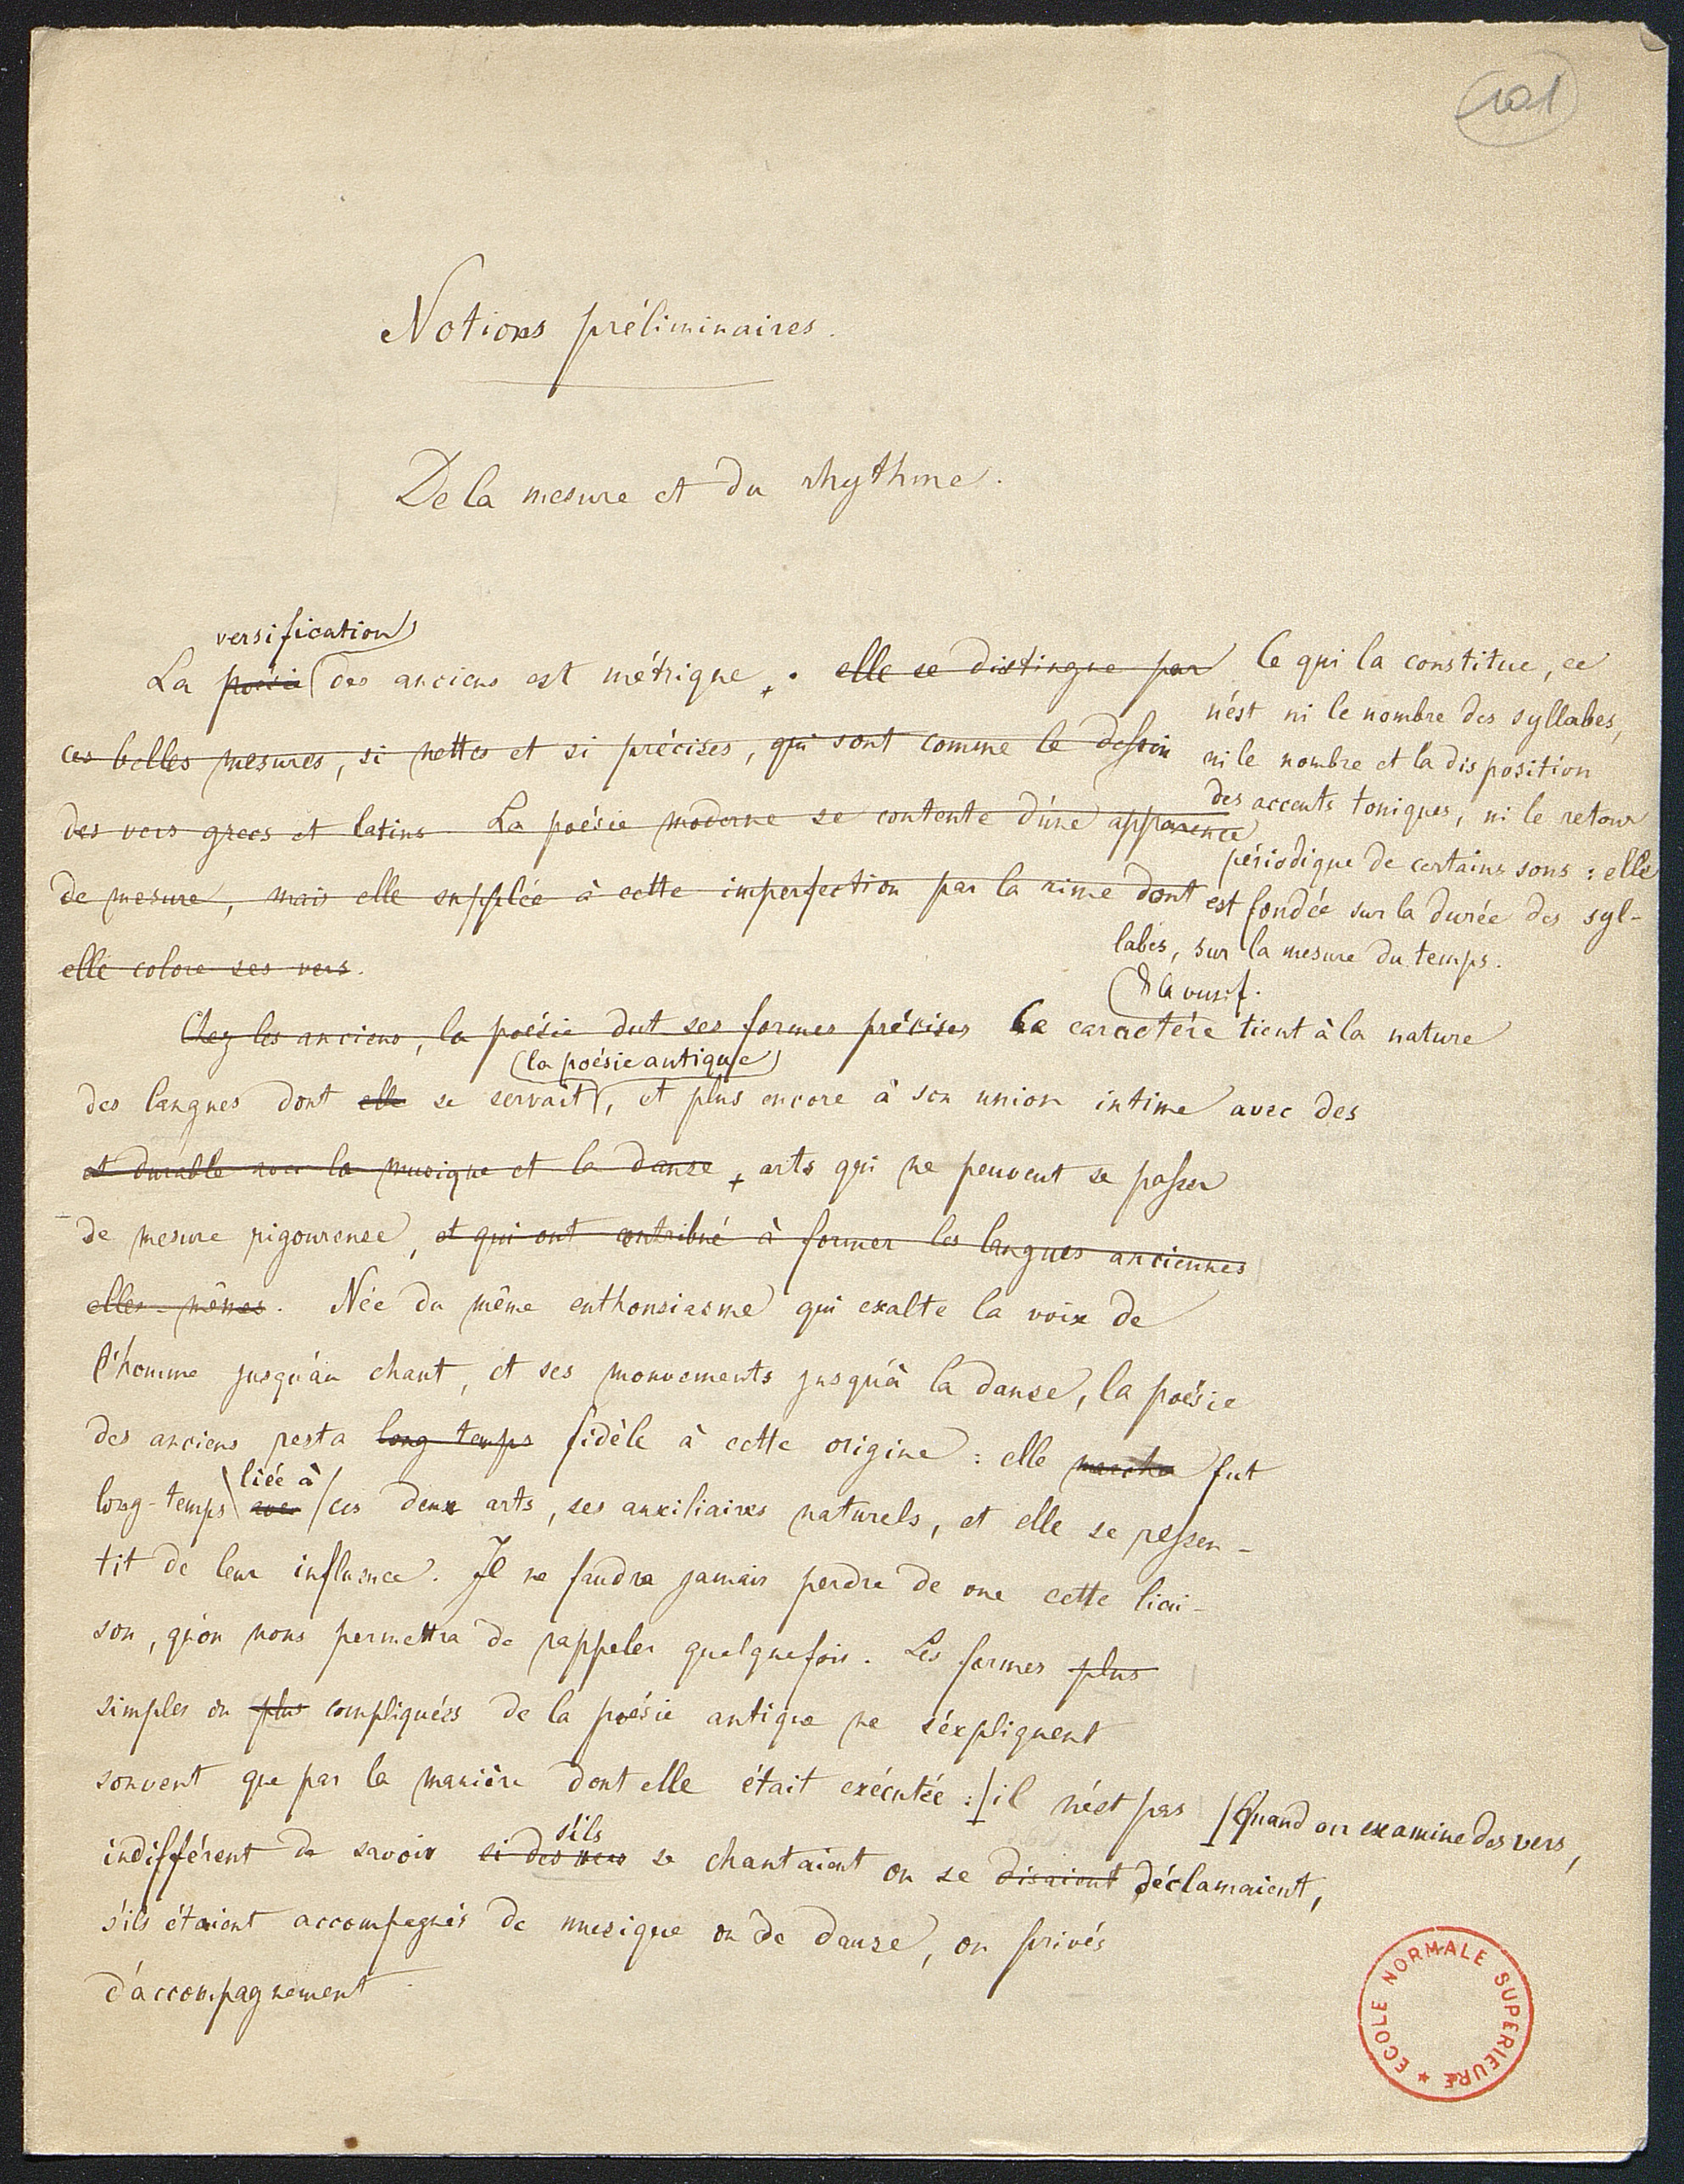 101
Notions préliminaires.
De la mesure et du rhythme.
versification
La poésie des anciens est métrique. elle se distingue par
ces belles mesures, si nettes et si précises, qui sont comme le dessin
des vers grecs et latins. La poésie moderne se contente d'une apparence
de mesure, mais elle supplée à cette imperfection par la rime dont
elle colore ses vers.
Ce qui la constitue, ce
n'est ni le nombre des syllabes,
ni le nombre et la disposition
des accents toniques, ni le retour
périodique de certains sons : elle
est fondée sur la durée des syl-
labes, sur la mesure du temps.
de la versif.
Chez les anciens, la poésie dut ses formes précises Ce caractère tient à la nature
(la poésie antique)
des langues dont elle se servait, et plus encore à son union intime avec des
et durable avec la musique et la danse, arts qui ne peuvent se passer
de mesure rigoureuse, et qui ont contribué à former les langues anciennes
elles-mêmes. Née du même enthousiasme qui exalte la voix de
l'homme jusqu'au chant, et ses mouvements jusqu'à la danse, la poésie
des anciens resta long-temps fidèle à cette origine : elle marcha fut
liée à
long-temps avec ces deux arts, ses auxiliaires naturels, et elle se ressen-
tit de leur influence. Il ne faudra jamais perdre de vue cette liai-
son, qu'on nous permettra de rappeler quelquefois. Les formes plus
simples ou plus compliquées de la poésie antique ne s'expliquent
souvent que par la manière dont elle était exécutée : il n'est pas
Quand on examine des vers,
s'ils
indifférent de savoir si des vers se chantaient ou se disaient déclamaient,
s'ils étaient accompagnés de musique ou de danse, ou privés
d'accompagnement.
ECOLE NORMALE SUPERIEURE